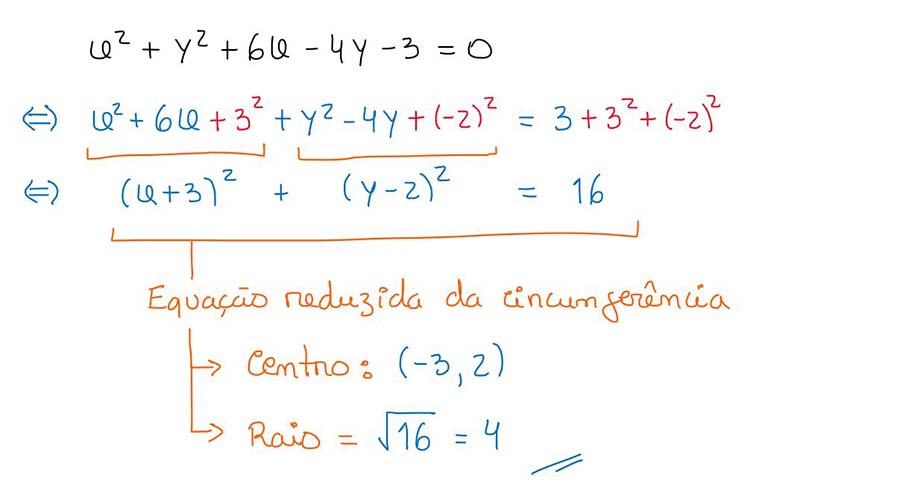 x² + y² + 6x - 4y - 3 = 0
⇔ x² + 6x + 3² + y² - 4y + (-2)² = 3 + 3² + (-2)²
⇔ (x+3)² + (y-2)² = 16
Equação reduzida da circunferência
→ Centro: (-3, 2)
→ Raio = √16 = 4